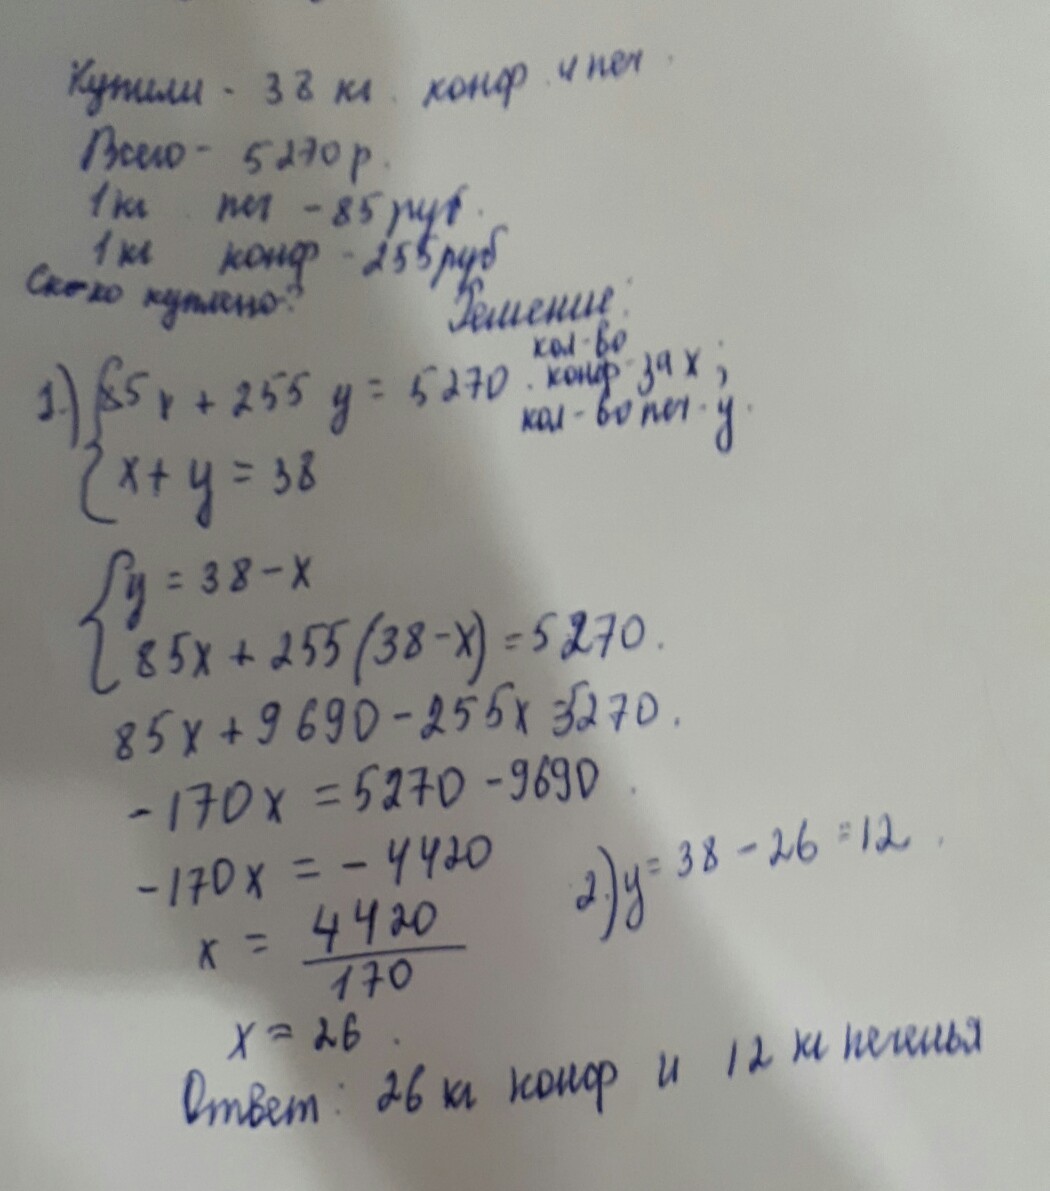 Купили - 38 кг. конф и печ.
Всего - 5270 р.
1 кг печ - 85 руб.
1 кг конф - 255 руб
Ск-ко куплено?
Решение:
кол-во
1.) { 85x + 255 y = 5270. конф - за x;
кол-во печ - y.
{ x + y = 38
{ y = 38 - x
85x + 255 (38 - x) = 5270.
85x + 9690 - 255x = 5270.
-170x = 5270 - 9690.
-170x = - 4420
2.) y = 38 - 26 = 12.
x = 4420
170
x = 26.
Ответ: 26 кг конф и 12 кг печенья